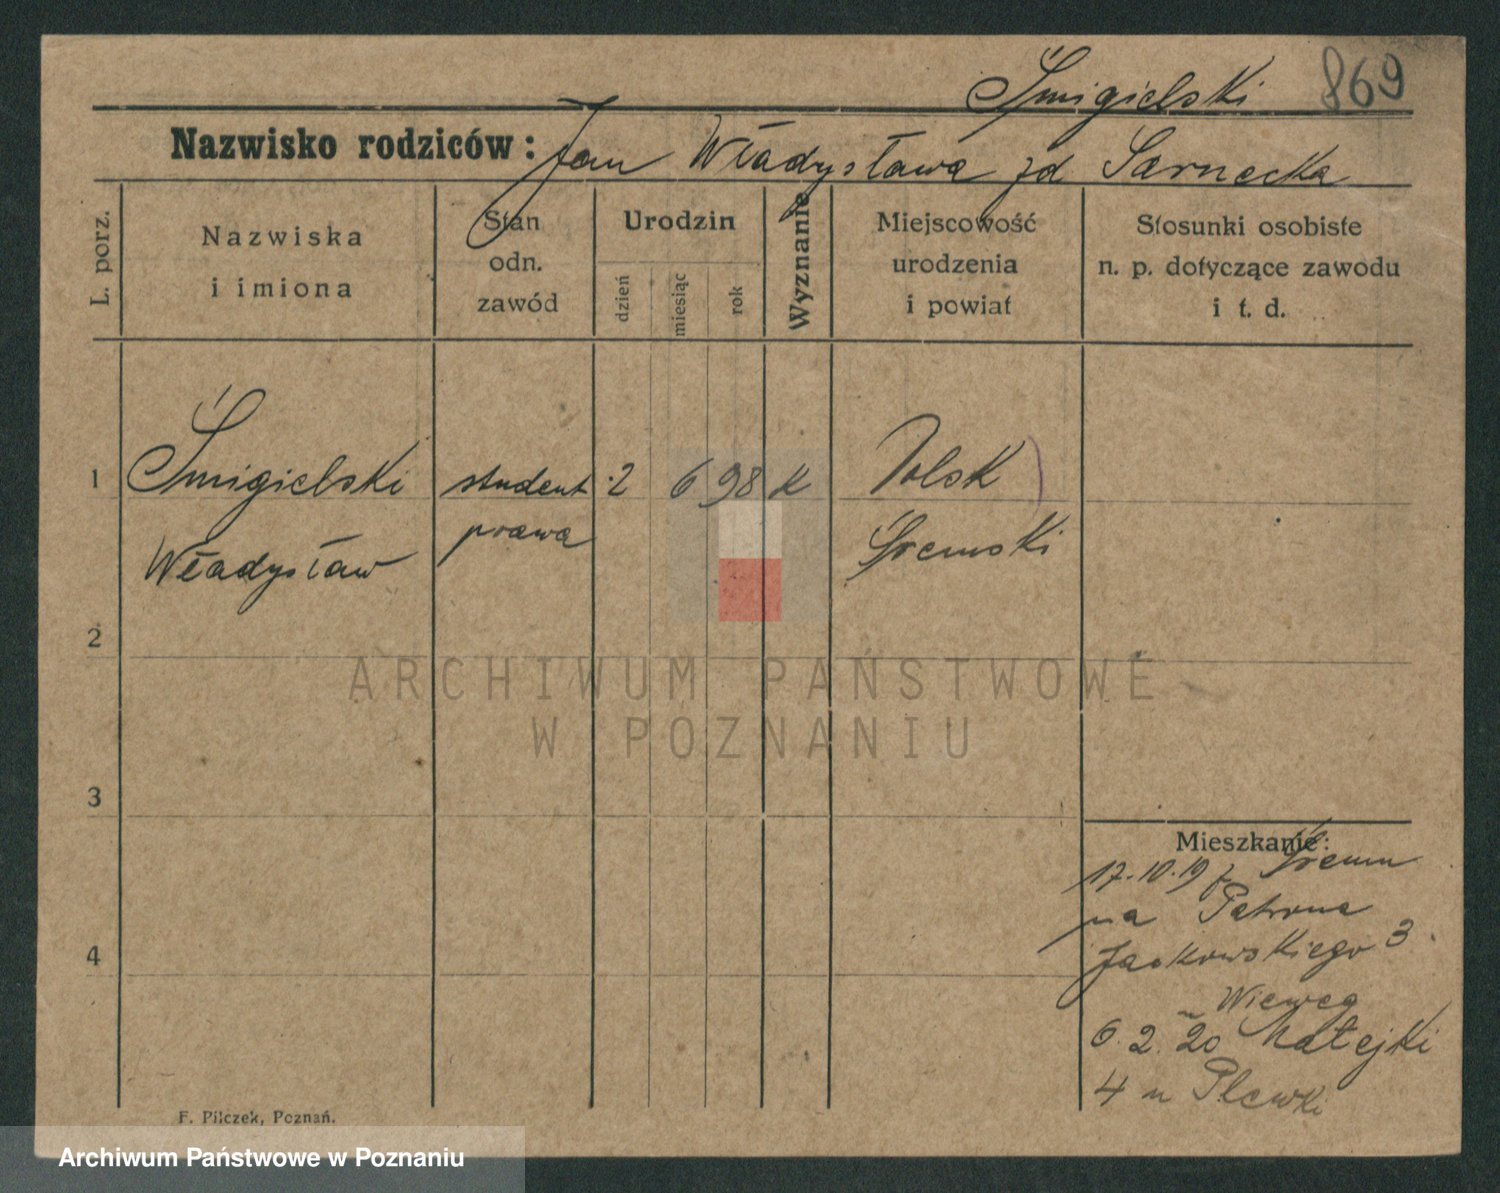 Śmigielski 869
Nazwisko rodziców: Jan Władysława zd Sarnecka
L. porz.
Nazwiska
i imiona
Stan
odn.
zawód
Urodzin
dzień
miesiąc
rok
Wyznanie
Miejscowość
urodzenia
i powiat
Stosunki osobiste
n. p. dotyczące zawodu
i t. d.
1 Śmigielski student 2 6 98 K Dolsk
Władysław prawa Śremski
2
3
4
Mieszkanie:
17.10.19 z Śremu
na Patrona
Jackowskiego 3.
Wieweg
6.2.20 Matejki
4 u Plewki
F. Pilczek, Poznań.
ARCHIWUM PAŃSTWOWE
W POZNANIU
Archiwum Państwowe w Poznaniu